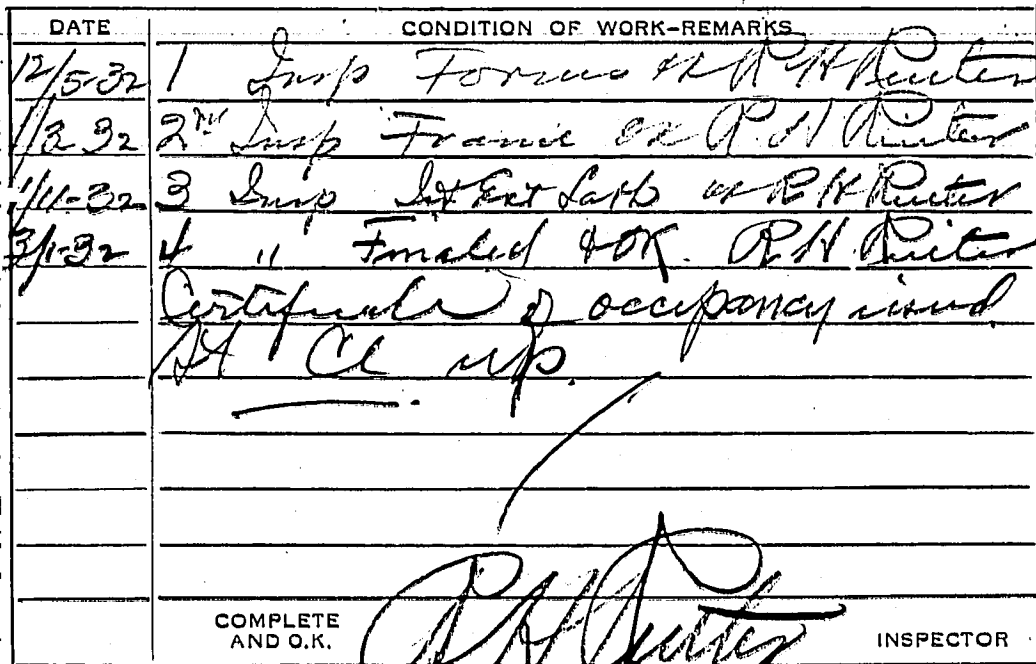 DATE CONDITION OF WORK-REMARKS
12/5-32 1 Insp Forms ok R H Ruiter
1/3 32 2nd Insp Frame ok R H Ruiter
1/11-32 3 Insp Int Ext Lath ok R H Ruiter
3/1-32 4 " Finaled & OK. R H Ruiter
Certificate of occupancy issued
St Cl up.
COMPLETE AND O.K. R H Ruiter INSPECTOR